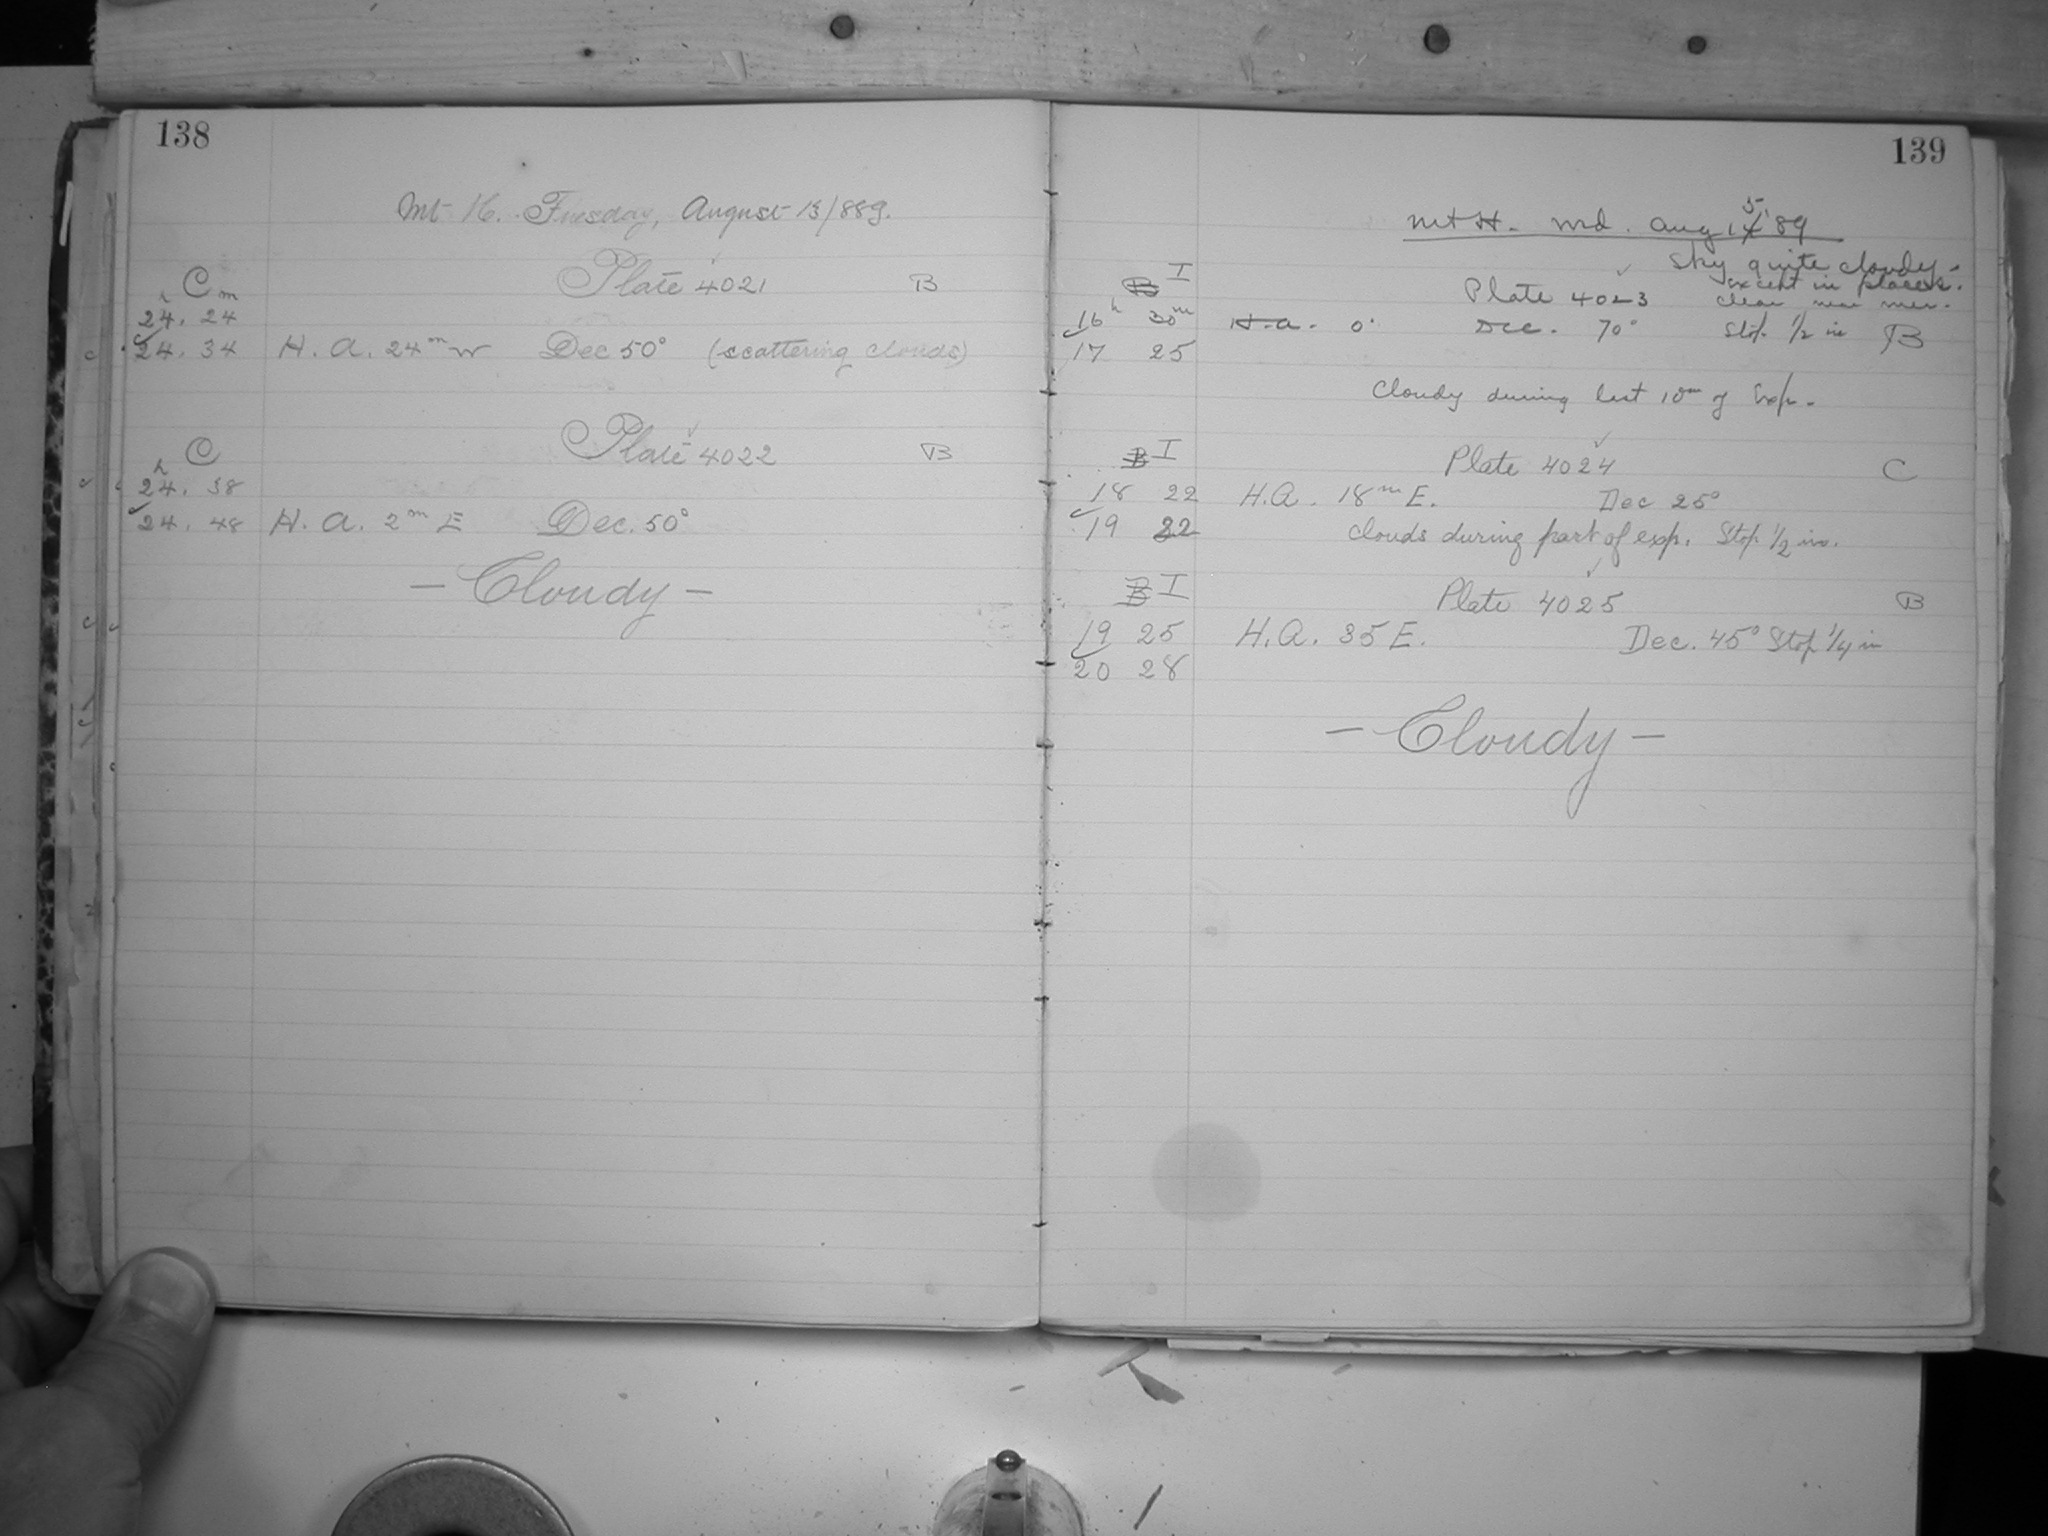 138
Mt H. Tuesday, August 13/889.
C
h m
Plate 4021 B
24. 24
24. 34 H. A. 24m W Dec 50° (scattering clouds)
C
h
Plate 4022 B
24. 38
24. 48 H. A. 2m E Dec. 50°
— Cloudy —
139
5
Mt H. Md. Aug 14 '89
Sky quite cloudy-
except in places.
B I Plate 4023 clear near mer.
16h 30m H.A. 0° Dec. 70° Stop 1/2 in B
17 25
Cloudy during last 10m of Exp.
B I Plate 4024 C
18 22 H.A. 18m E. Dec 25°
19 22 Clouds during part of exp. Stop 1/2 in.
B I Plate 4025 B
19 25 H.A. 35 E. Dec. 45° Stop 1/4 in
20 28
— Cloudy —